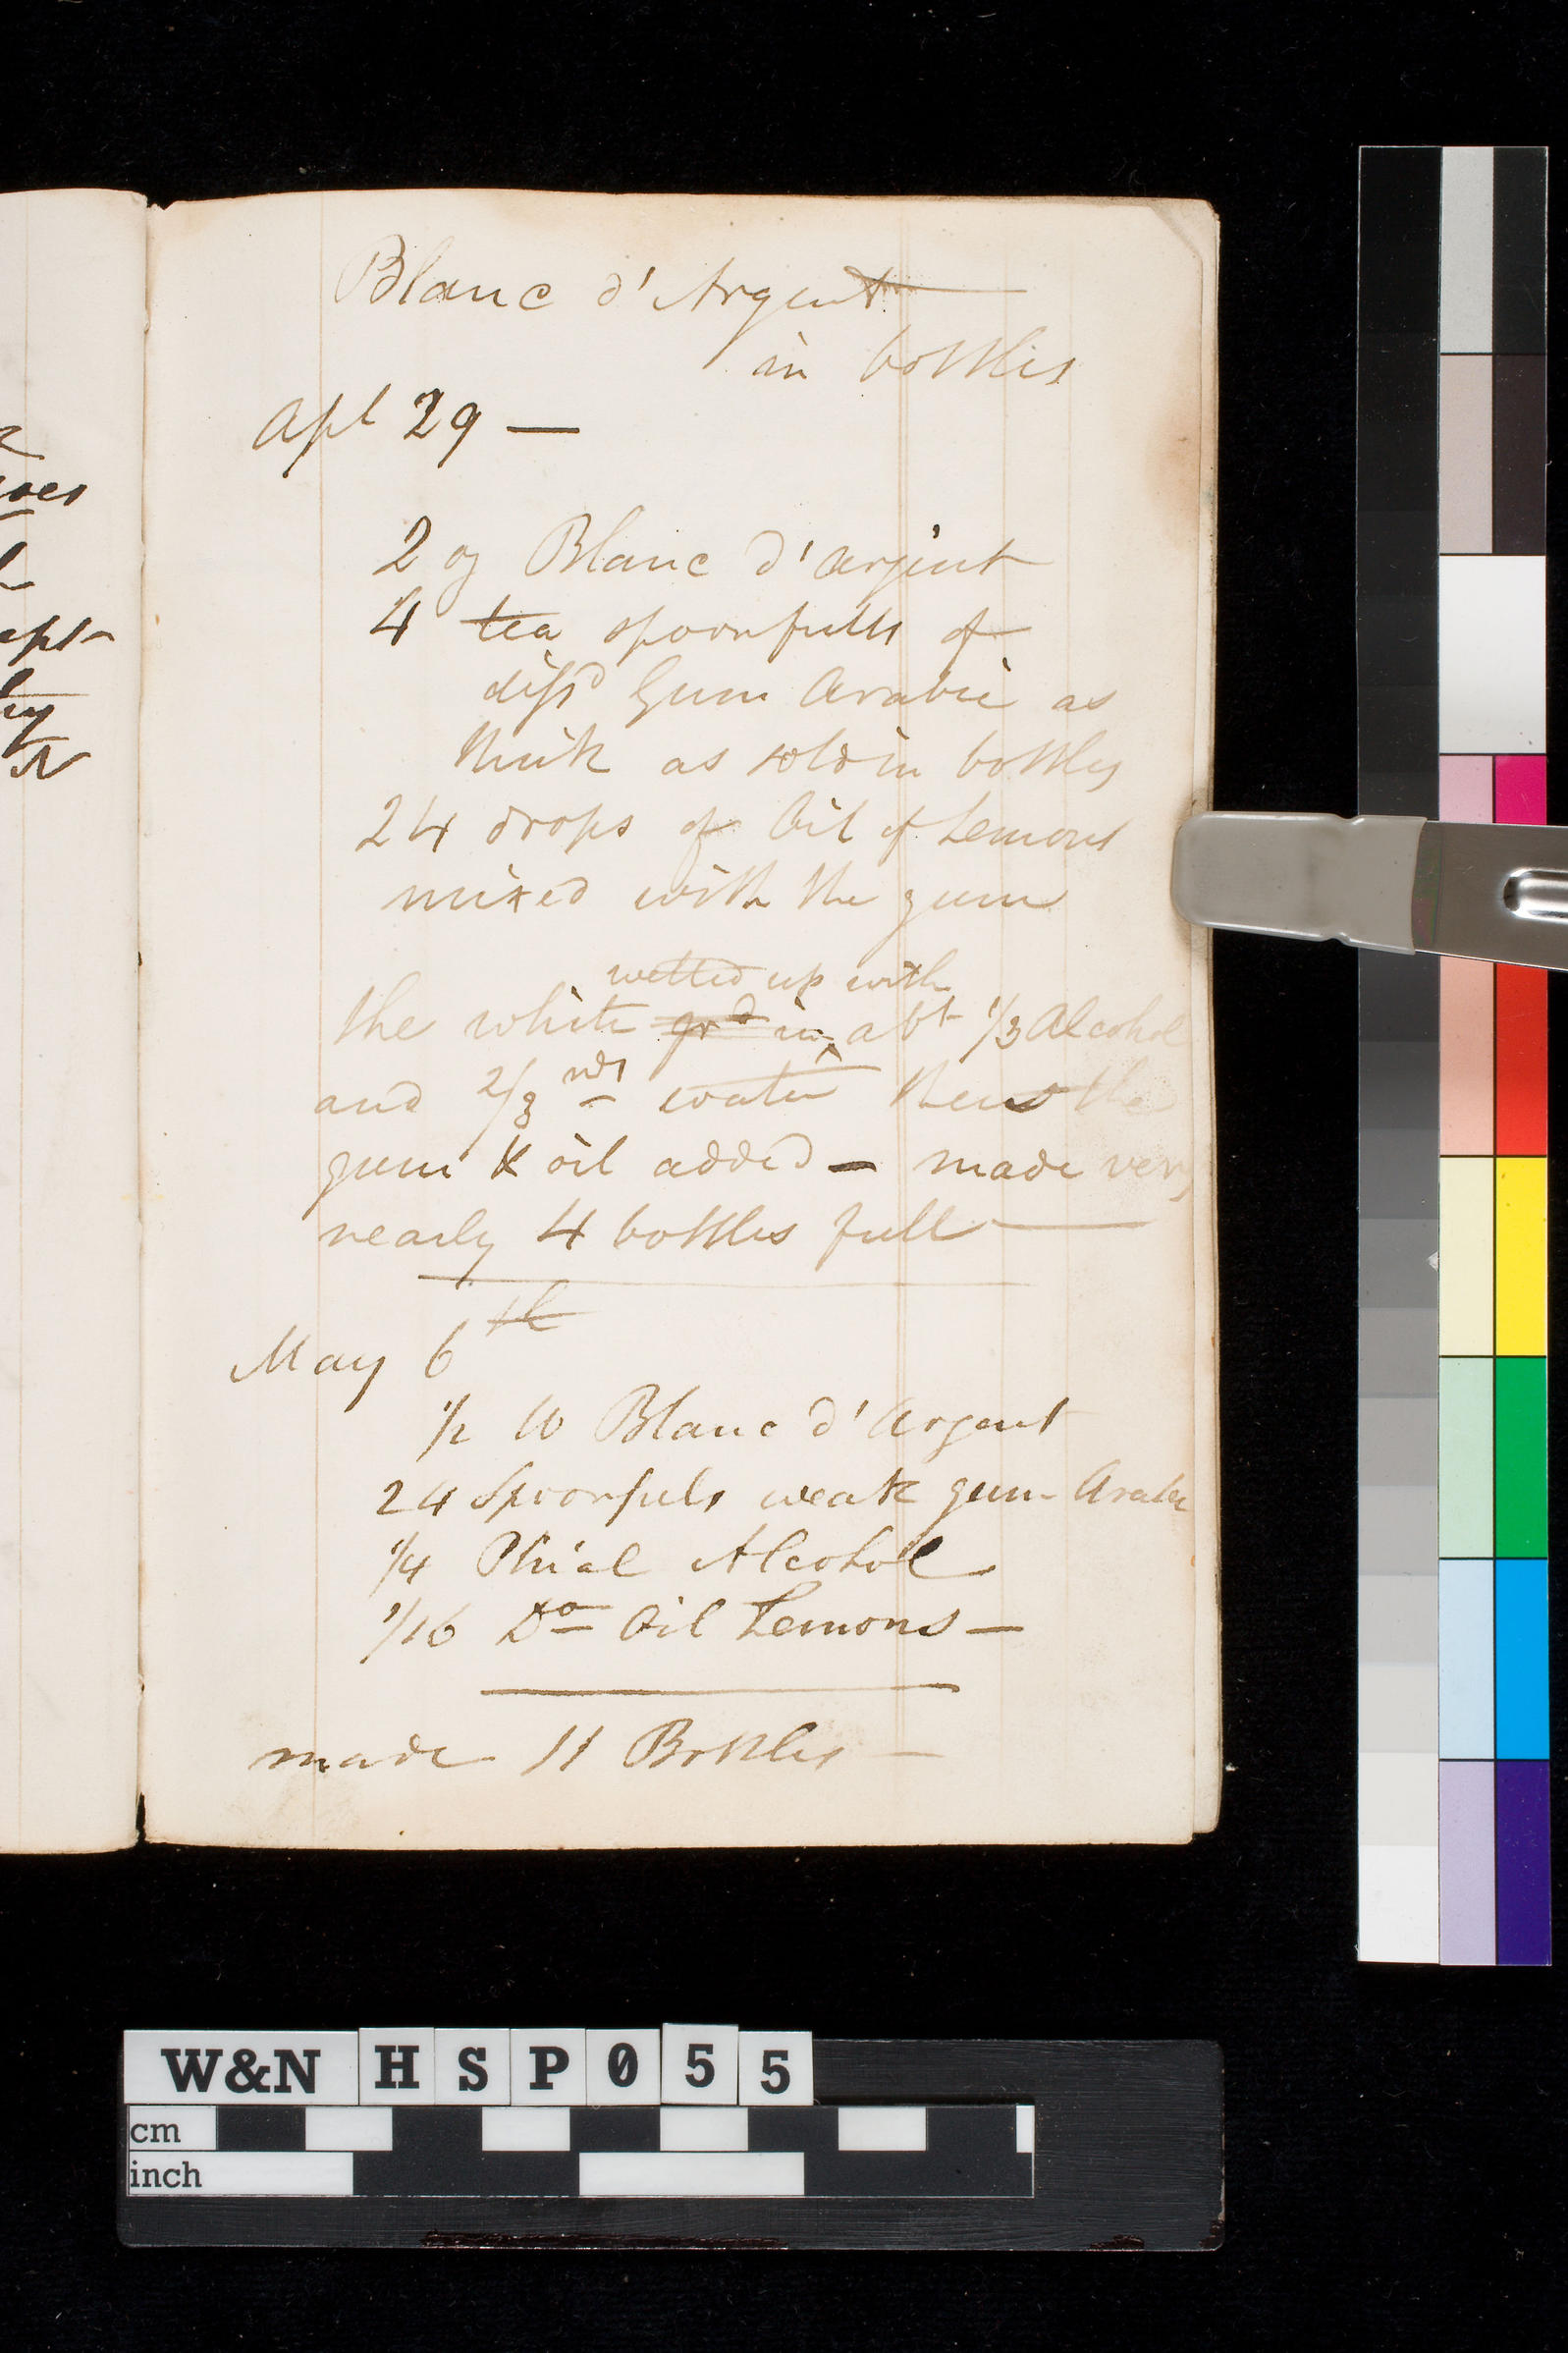 Blanc d'Argent
in bottles
Apl 29 —
2 oz Blanc d'argent
4 tea spoonfulls of
dissd Gum Arabic as
thick as sold in bottles
24 drops of Oil of Lemons
mixed with the gum
wetted up with
the white grd in abt 1/3 Alcohol
and 2/3 rds water then the
gum & oil added — made very
nearly 4 bottles full —
May 6th
1/2 lb Blanc d'Argent
24 Spoonfuls weak gum Arabic
1/4 Phial Alcohol
1/16 Do Oil Lemons —
made 11 Bottles —
W&N HSP055
cm
inch